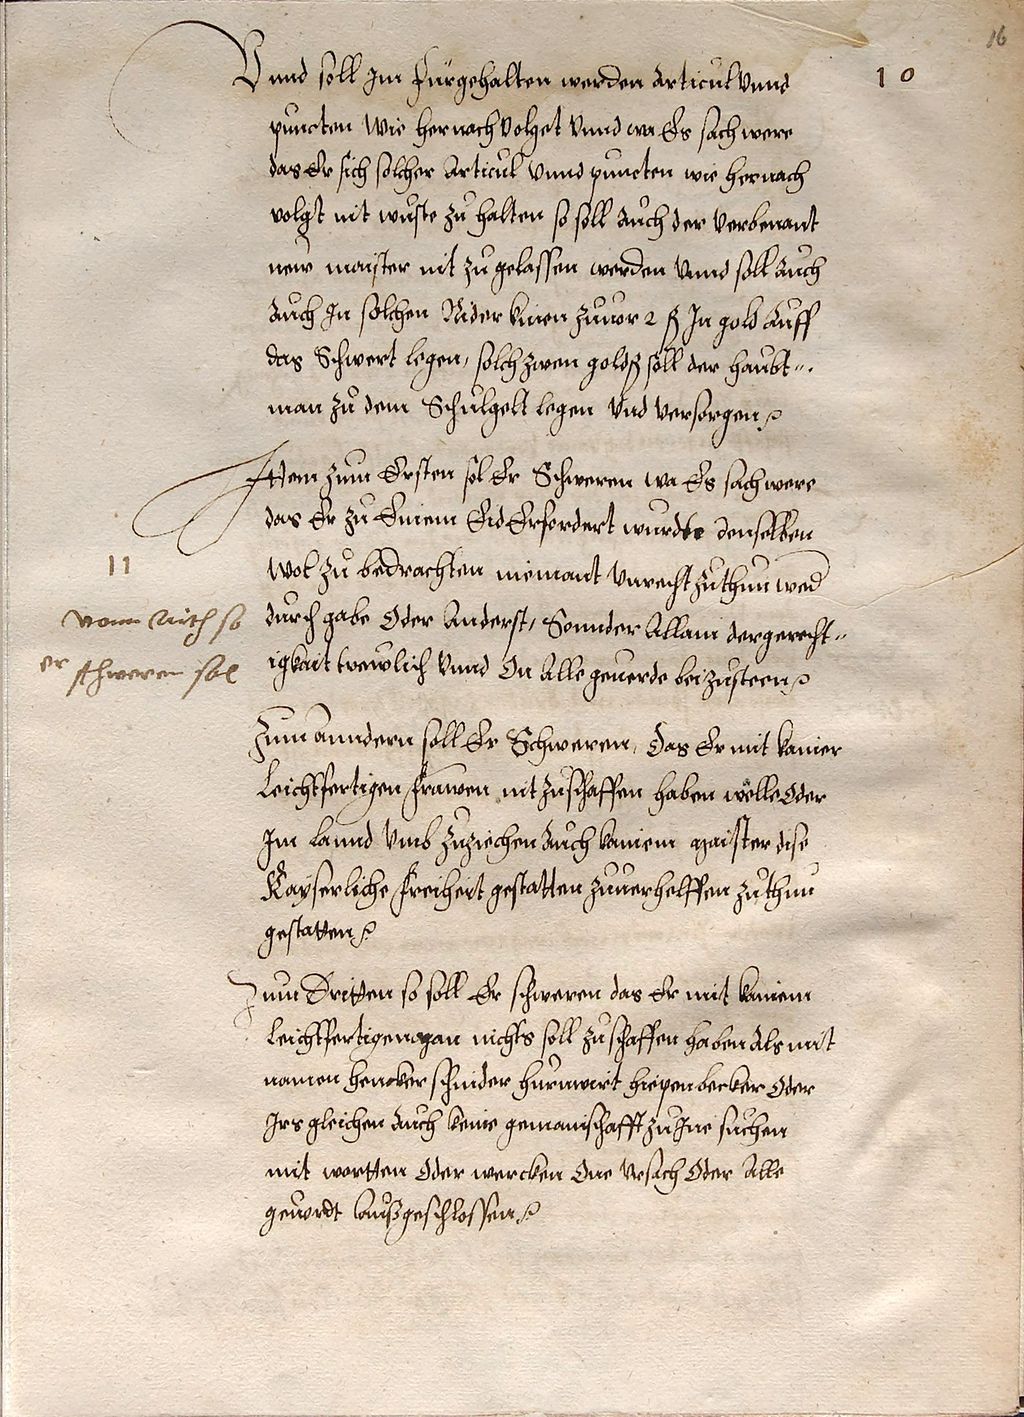 16
10
Vnnd soll Im Fürgehalten werden Articul Vnnd
puncten Wie hernach Volget Vnnd wa Es sach were
das Er sich solcher Articul Vnnd puncten wie hernach
volgt nit wuste zu halten so soll Auch der Verbenant
new maister nit zu gelassen werden Vnnd soll Auch
Auch In solchen Nider knien zuuor 2 fl In gold Auff
das Schwert legen, solch zwen gold fl soll der haubt„.
man zu dem Schulgelt legen Vnd Versorgen
Ittem zum Ersten sol Er Schweren wa Es sach were
das Er zu Einem Eid Erfordert wurde denselben
11
Wol zu bedrachten niemant Vnrecht zuthun wed
vonn
so durch gabe Oder Anderst, Sonnder Allain der gerecht„
er schweren sol
igkait trewlich Vnnd On Alle geuerde bei zusteen
Zum Anndern soll Er Schweren, Das Er mit kainer
Leichtfertigen frawen nit zuschaffen haben wölle Oder
Im lannd Vmb zuziechen Auch kainem maister dise
Kayserliche Freiheit gestatten zuuerhelffen zuthun
gestatten
Zum Dritten so soll Er schweren das Er mit kainem
Leichtfertigen man nichts soll zuschaffen haben Als mit
namen hencker schinder hurnwirt hiepenbecker Oder
Irs gleichen Auch keine gemainschafft zu Ine suchen
mit wortten Oder wercken One Vrsach Oder Alle
geuordt Außgeschlossen